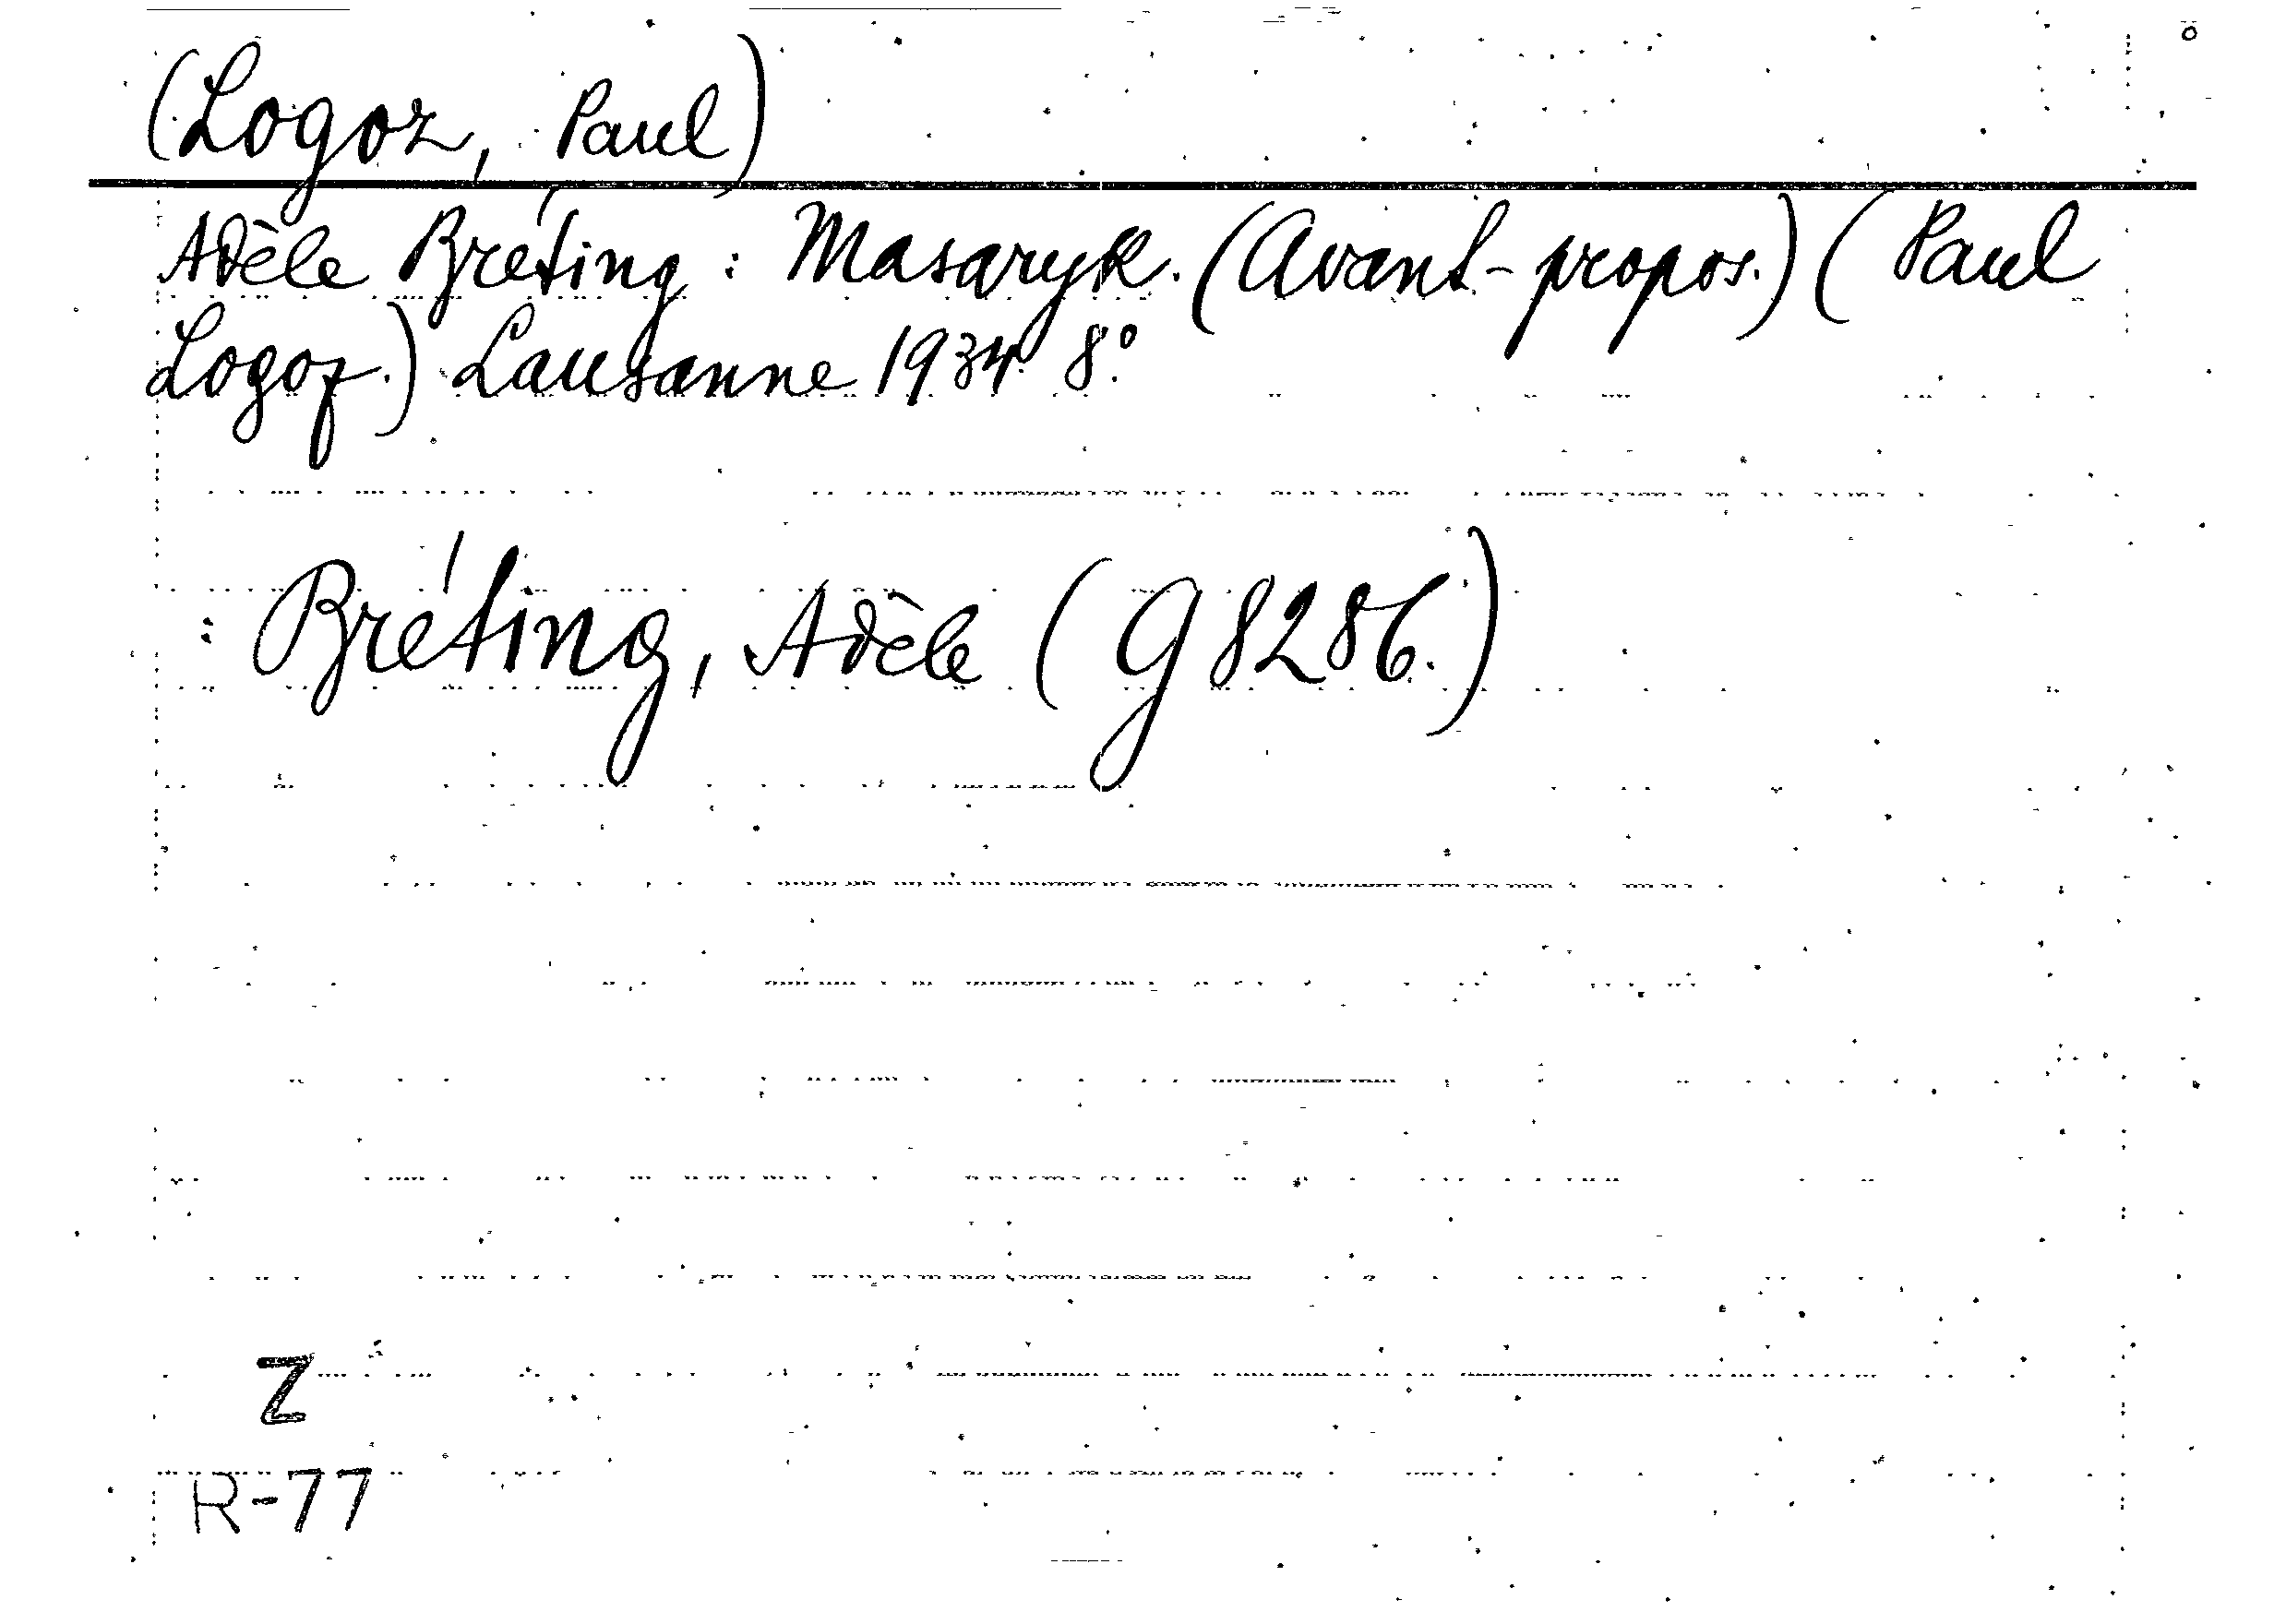 (Logoz, Paul)
Adèle Bréting: Masaryk. (Avant-propos.) (Paul
Logoz.) Lausanne 1934. 8°.
: Bréting, Adèle (G 8286.)
Z
R-77